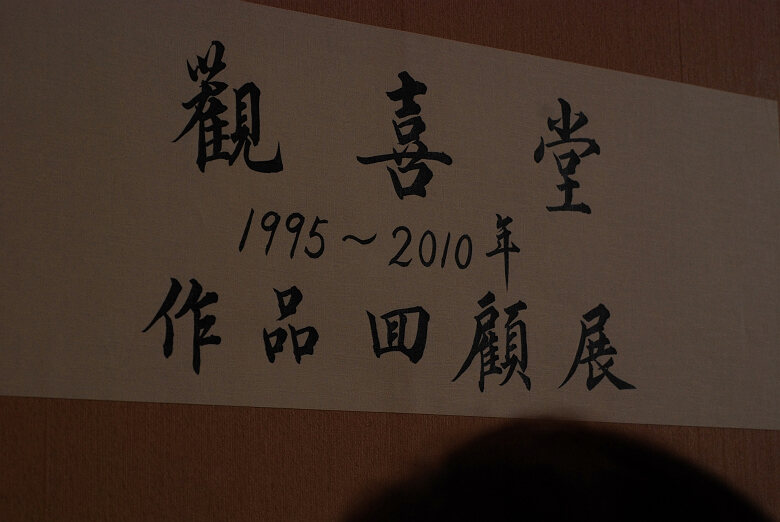 觀喜堂
1995～2010年
作品回顧展